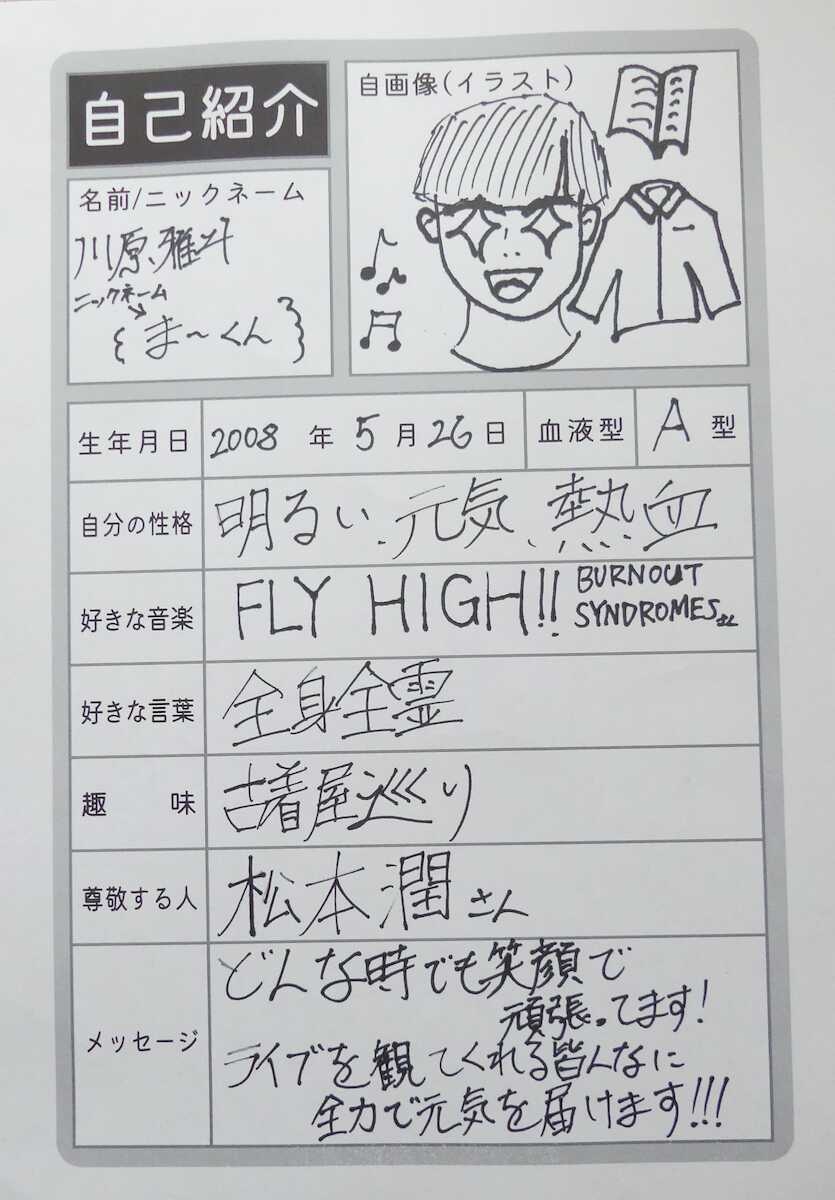 自己紹介
自画像(イラスト)
名前/ニックネーム
川原雅斗
ニックネーム
ま〜くん
生年月日 2008 年 5 月 26 日 血液型 A 型
自分の性格 明るい、元気、熱血
好きな音楽 FLY HIGH!! BURNOUT
SYNDROMES さん
好きな言葉 全身全霊
趣味 古着屋巡り
尊敬する人 松本潤さん
メッセージ
どんな時でも笑顔で
頑張ってます!
ライブを観てくれる皆んなに
全力で元気を届けます!!!